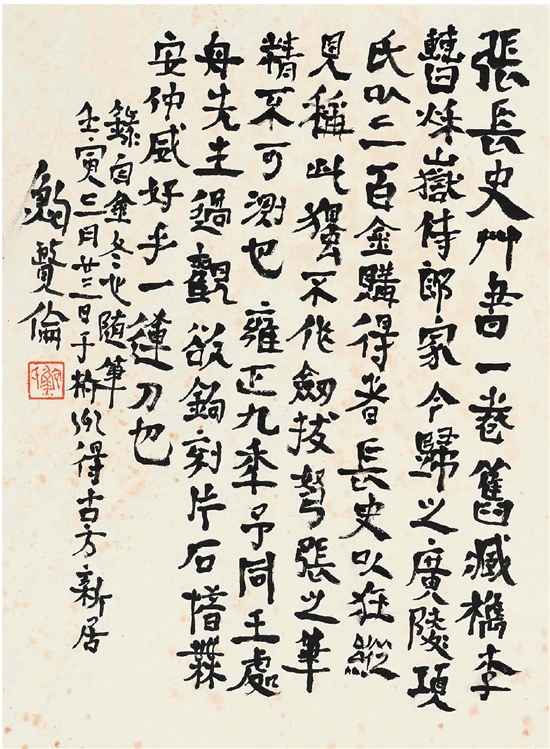 張長史艸書一卷舊藏檇李
曹秌嶽侍郎家今歸之廣陵項
氏以二百金購得者長史以狂縱
見稱此獨不作劍拔弩張之筆
精不可測也 雍正九年予同王處
舟先生過觀欲鉤刻片石惜無
安仲威好手一運刀也
錄自金冬心隨筆
壬寅三月廿三日于杭州得古方新居
鮑賢倫